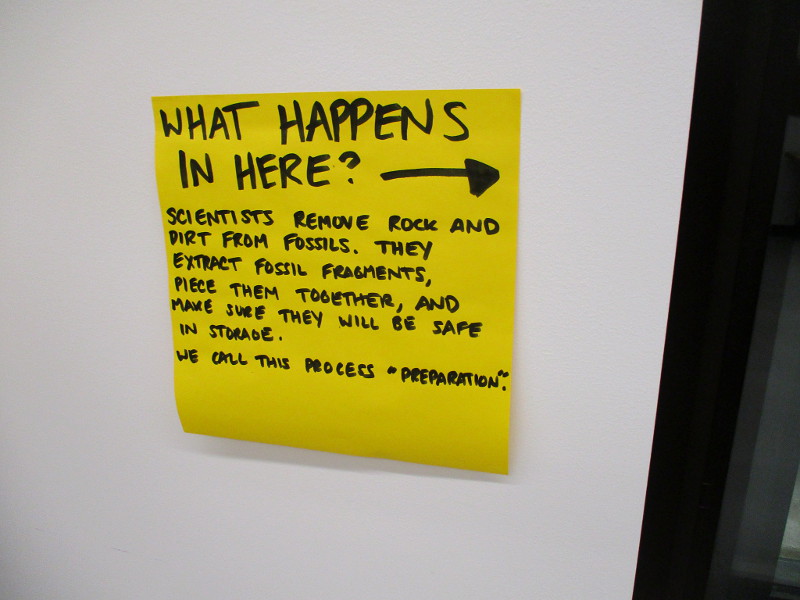 WHAT HAPPENS
IN HERE? →
SCIENTISTS REMOVE ROCK AND
DIRT FROM FOSSILS. THEY
EXTRACT FOSSIL FRAGMENTS,
PIECE THEM TOGETHER, AND
MAKE SURE THEY WILL BE SAFE
IN STORAGE.
WE CALL THIS PROCESS "PREPARATION".